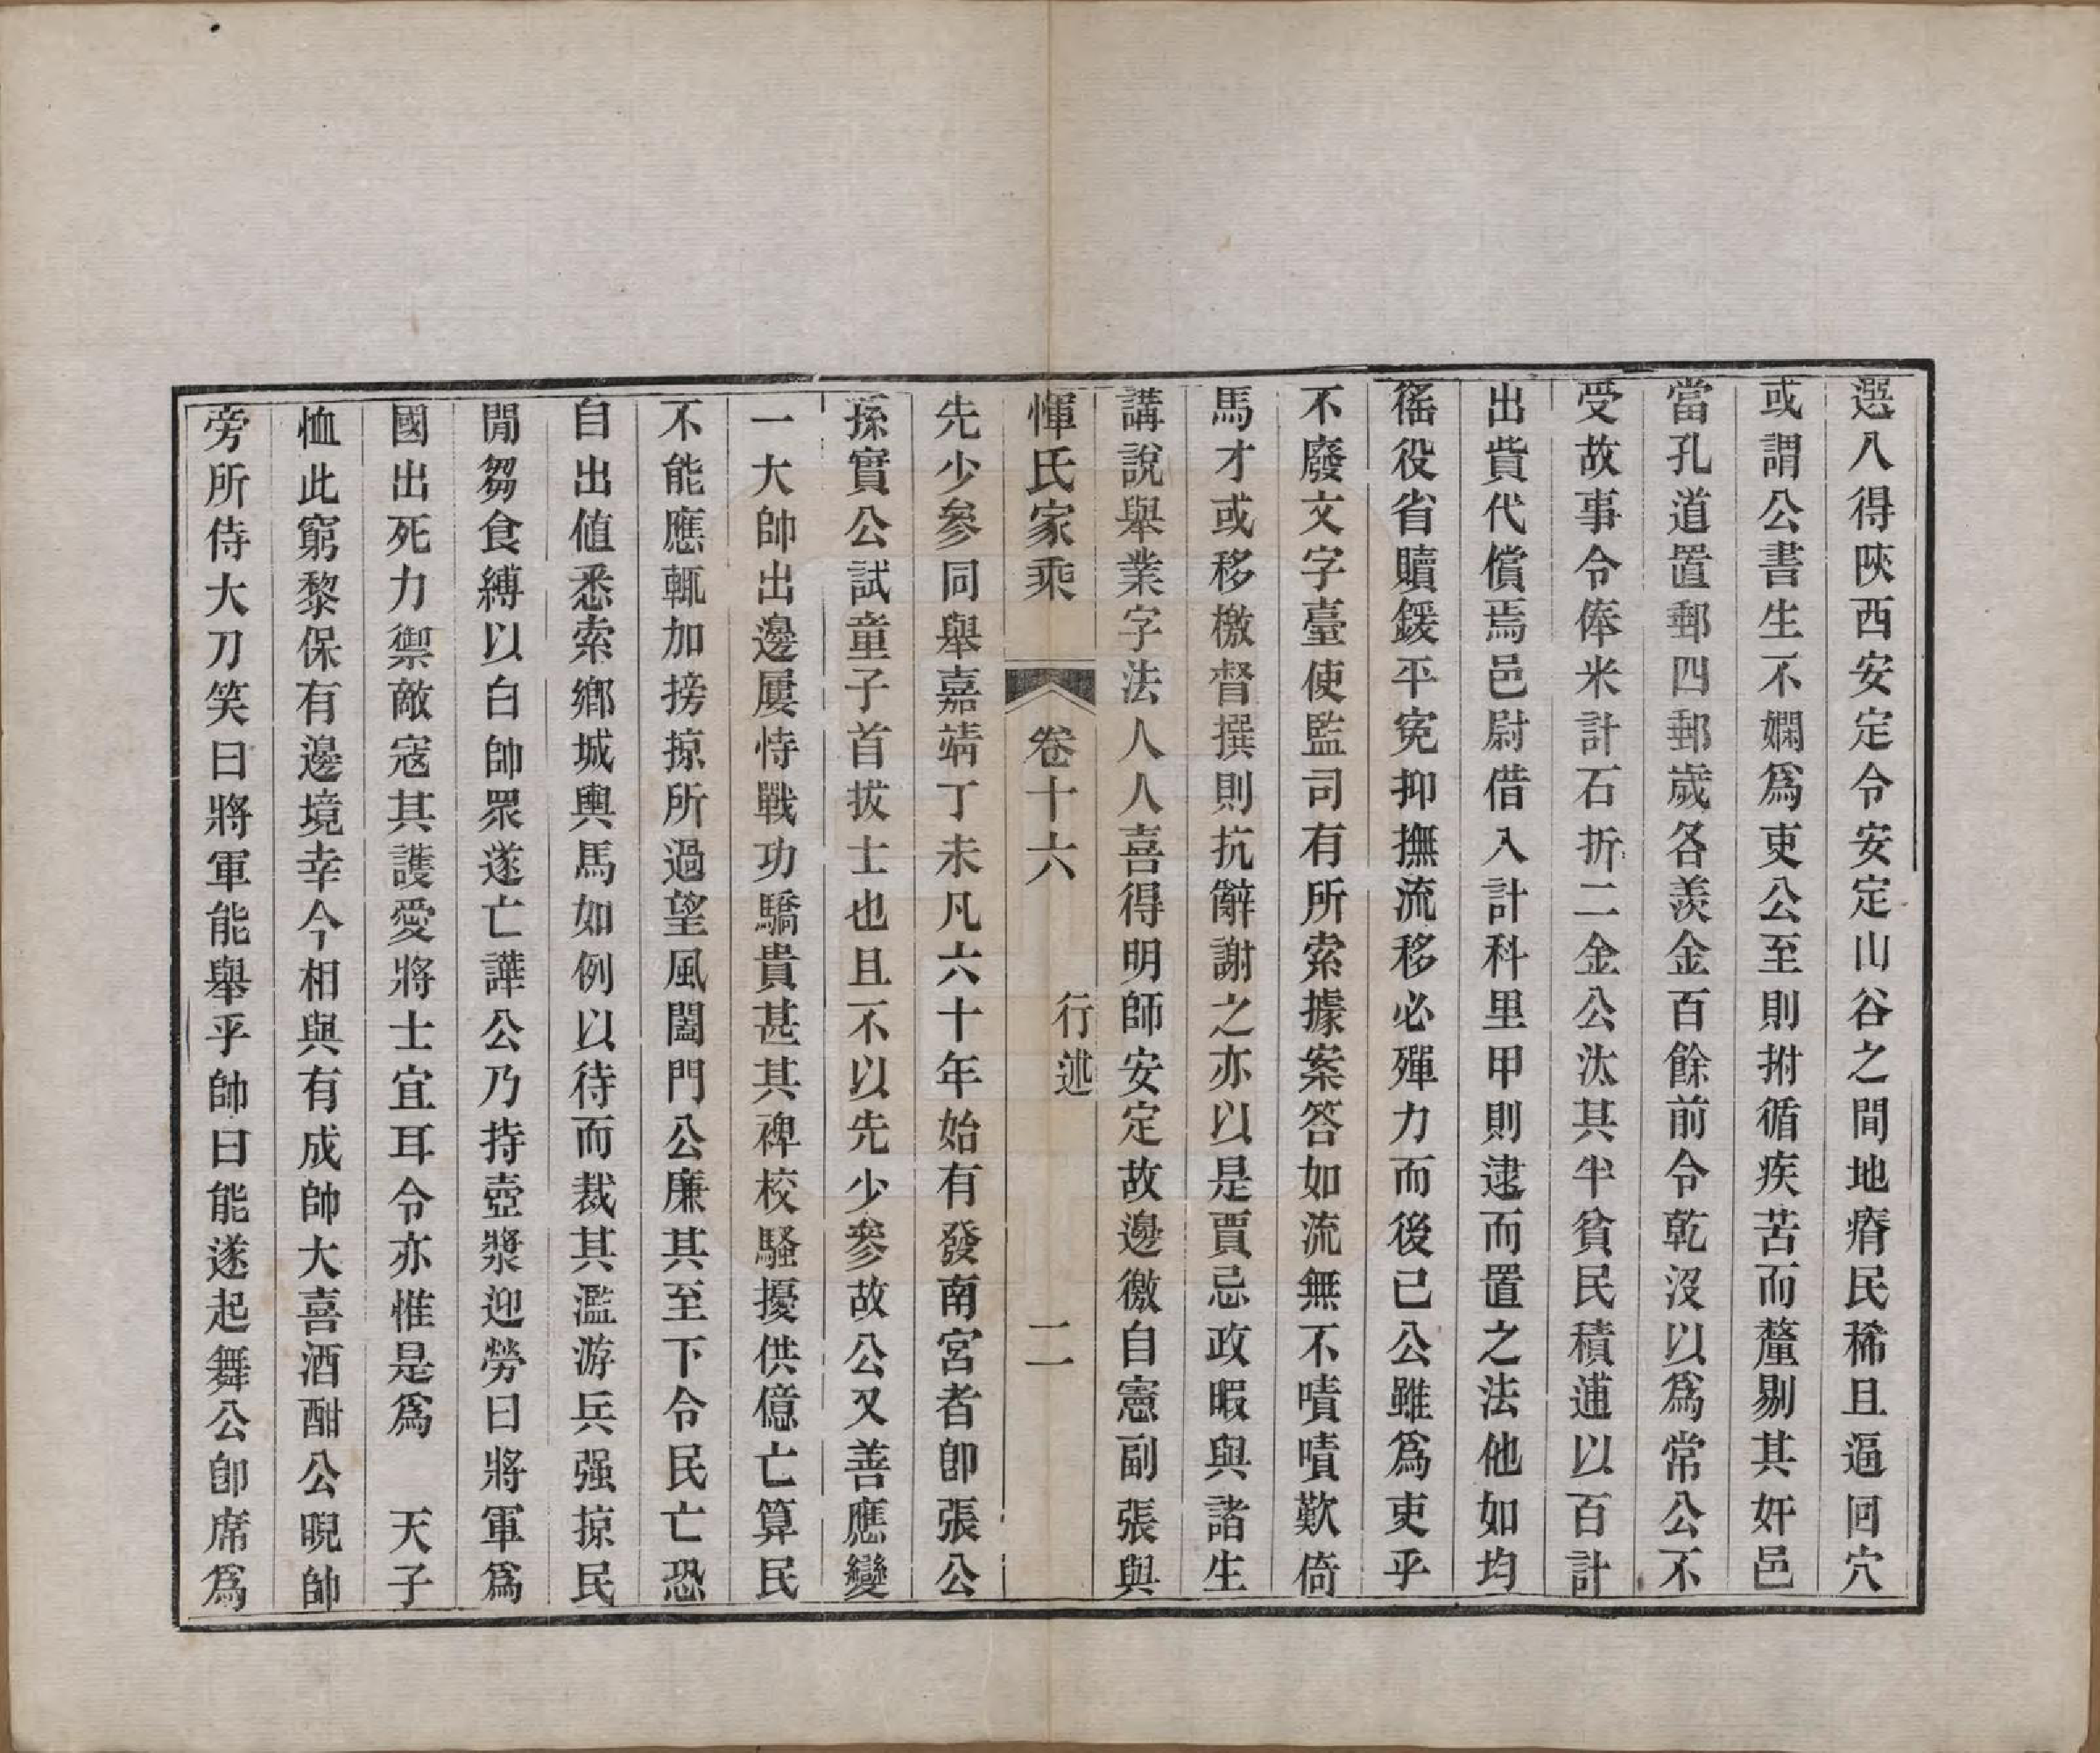 選八得陝西安定令安定山谷之間地瘠民稀且逼囘穴
或謂公書生不嫻爲吏公至則拊循疾苦而釐剔其奸邑
當孔道置郵四郵歲各羨金百餘前令乾沒以爲常公不
受故事令俸米計石折二金公汰其半貧民積逋以百計
出貲代償焉邑尉借入計科里甲則逮而置之法他如均
徭役省贖鍰平寃抑撫流移必殫力而後已公雖爲吏乎
不廢文字臺使監司有所索據案答如流無不嘖嘖歎倚
馬才或移檄督撰則抗辭謝之亦以是賈忌政暇與諸生
講說舉業字法人人喜得明師安定故邊徼自憲副張與
惲氏家乘 卷十六 行述 二
先少參同舉嘉靖丁未凡六十年始有發南宮者卽張公
孫實公試童子首拔士也且不以先少參故公又善應變
一大帥出邊屢恃戰功驕貴甚其裨校騷擾供億亡算民
不能應輒加搒掠所過望風闔門公廉其至下令民亡恐
自出値悉索鄉城輿馬如例以待而裁其濫游兵强掠民
閒芻食縛以白帥眾遂亡譁公乃持壺漿迎勞曰將軍爲
國出死力禦敵寇其護愛將士宜耳令亦惟是爲　天子
恤此窮黎保有邊境幸今相與有成帥大喜酒酣公睨帥
旁所侍大刀笑曰將軍能舉乎帥曰能遂起舞公卽席爲